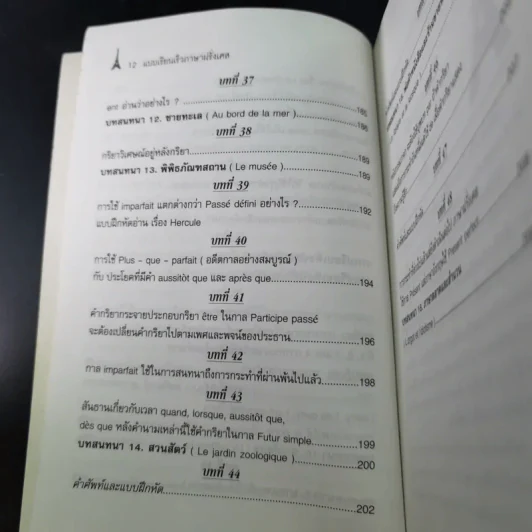 12 แบบเรียนเร็วภาษาฝรั่งเศส
บทที่ 37
ent อ่านว่าอย่างไร ? 185
บทสนทนา 12. ชายทะเล ( Au bord de la mer ) 186
บทที่ 38
กริยาวิเศษณ์อยู่หลังกริยา 189
บทสนทนา 13. พิพิธภัณฑสถาน ( Le musée ) 189
บทที่ 39
การใช้ imparfait แตกต่างกว่า Passé défini อย่างไร ? 192
แบบฝึกหัดอ่าน เรื่อง Hercule
บทที่ 40
การใช้ Plus - que - parfait ( อดีตกาลอย่างสมบูรณ์ )
กับ ประโยคที่มีคำ aussitôt que และ après que 194
บทที่ 41
คำกริยากระจายประกอบกริยา être ในกาล Participe passé
จะต้องเปลี่ยนคำกริยาไปตามเพศและพจน์ของประธาน 196
บทที่ 42
กาล imparfait ใช้ในการสนทนาถึงการกระทำที่ผ่านพ้นไปแล้ว 198
บทที่ 43
สันธานเกี่ยวกับเวลา quand, lorsque, aussitôt que,
dès que หลังคำนามเหล่านี้ใช้คำกริยาในกาล Futur simple 199
บทสนทนา 14. สวนสัตว์ ( Le jardin zoologique ) 200
บทที่ 44
คำศัพท์และแบบฝึกหัด 202